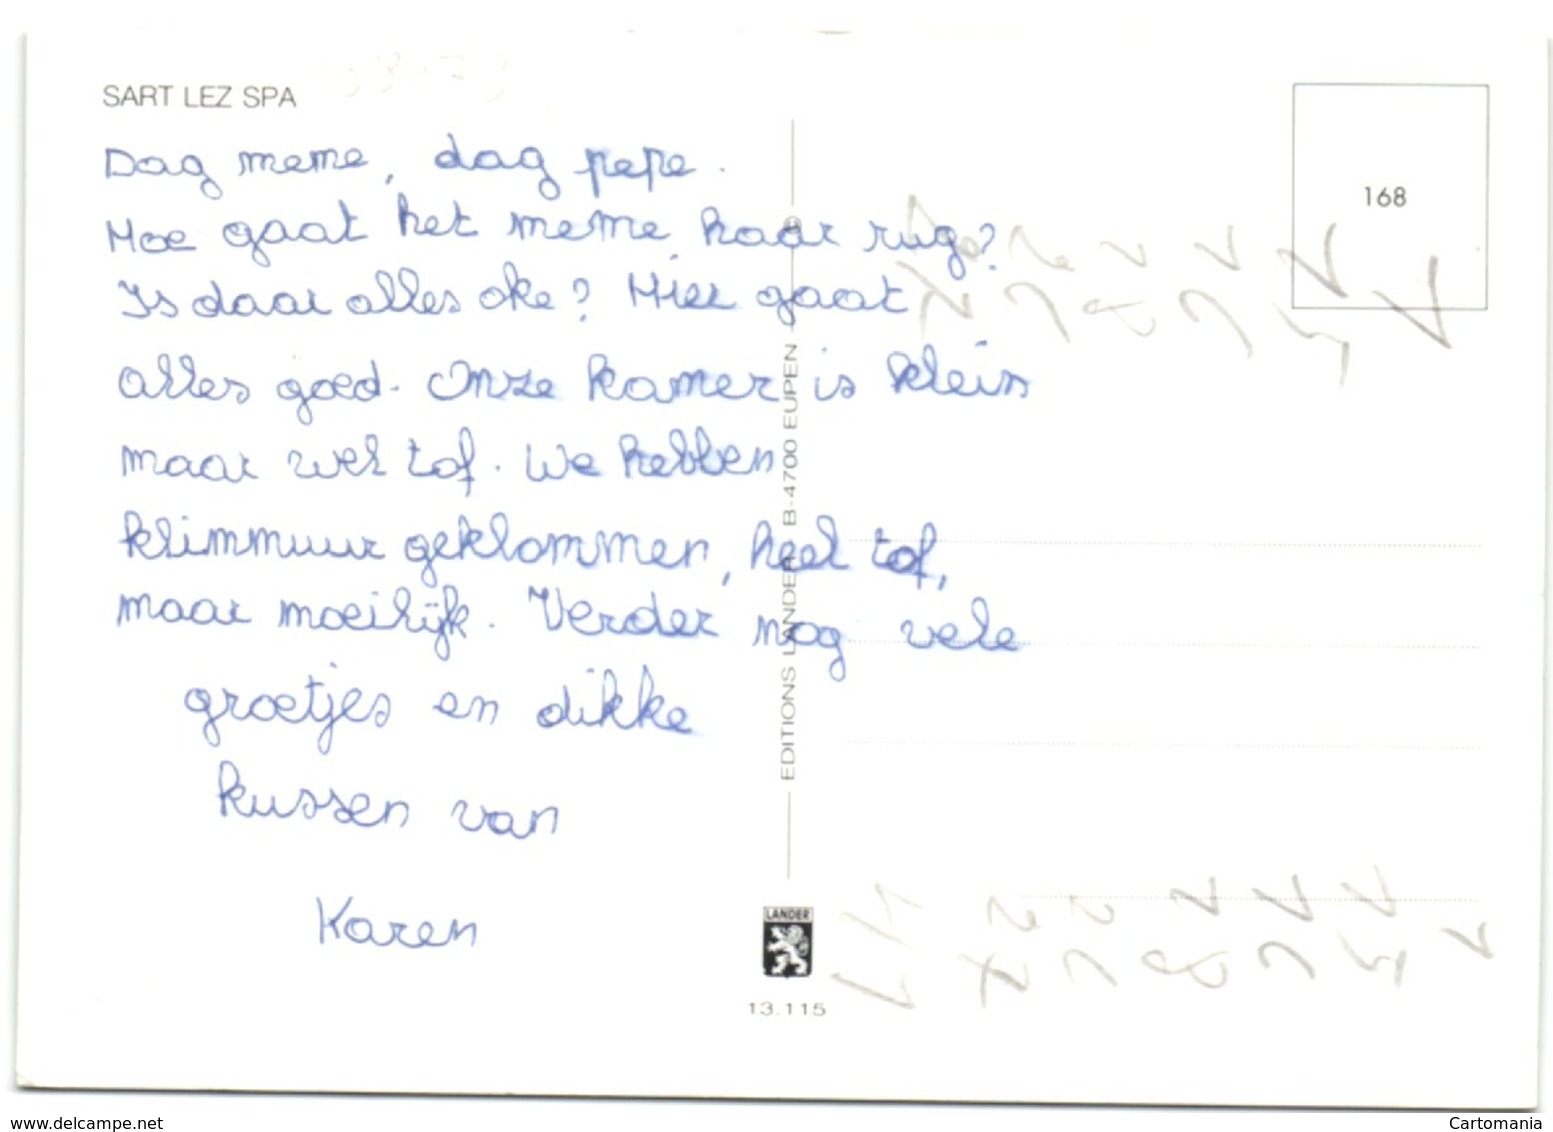 SART LEZ SPA
168
Dag meme, dag pepe.
Hoe gaat het meme haar rug?
Is daar alles oke? Hier gaat
alles goed. Onze kamer is klein
maar wel tof. We hebben
klimmuur geklommen, heel tof,
maar moeilijk. Verder nog vele
groetjes en dikke
kussen van
Karen
EDITIONS LANDER B-4700 EUPEN
LANDER
13.115
www.delcampe.net
Cartomania